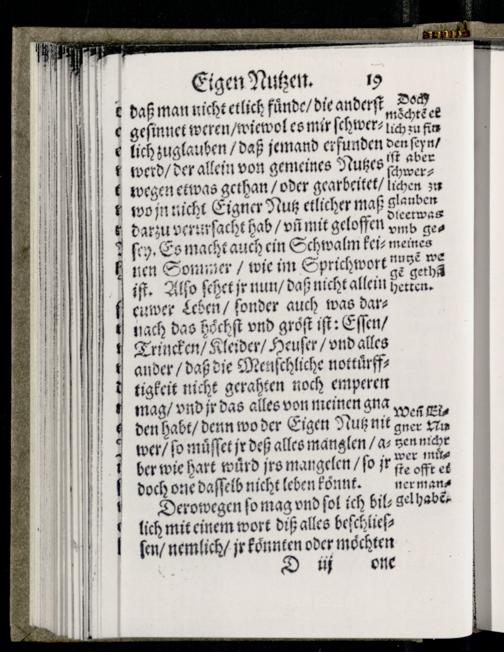 Eigen Nutzen. 19
daß man nicht etlich fünde/die anderst
gesinnet weren/wiewol es mir schwer-
lich zuglauben/ daß jemand erfunden
werd/ der allein von gemeines Nutzes
wegen etwas gethan/ oder gearbeitet/
wo jn nicht Eigner Nutz etlicher maß
darzu verursacht hab/ vn̄ mit geloffen
sey. Es macht auch ein Schwalm kei-
nen Sommer/ wie im Sprichwort
ist. Also sehet jr nun/ daß nicht allein
euwer Leben/ sonder auch was dar-
nach das höchst vnd gröst ist: Essen/
Trincken/ Kleider/ Heuser/ vnd alles
ander/ daß die Menschliche nottürff-
tigkeit nicht gerahten noch emperen
mag/ vnd jr das alles von meinen gna
den habt/ denn wo der Eigen Nutz nit
wer/ so müsset jr deß alles manglen/ a-
ber wie hart würd jrs mangelen/ so jr
doch one dasselb nicht leben könnt.
Derowegen so mag vnd sol ich bil-
lich mit einem wort diß alles beschlies-
sen/ nemlich/ jr könnten oder möchten
D iij one
Doch
möchtē et
lich zu fin
den seyn/
ist aber
schwer-
lichen zu
glauben
die etwas
vmb ge-
meines
nutzē we
gē gethā
hetten.
Weñ Ei-
gner Nu
tzen nicht
wer mü-
ste offt et
ner man-
gel habē.